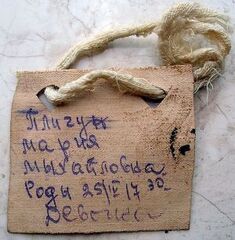 Плигун
мария
михайловна.
роды 25/IV 17 30
Девочка